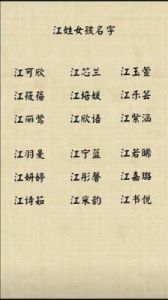 江姓女孩名字
江可欣 江芯兰 江玉萱
江筱蓓 江培媛 江乐芸
江丽莺 江欣语 江紫涵
江羽曼 江宁蓝 江若曦
江妍婷 江彤馨 江嘉璐
江诗茹 江采韵 江书悦